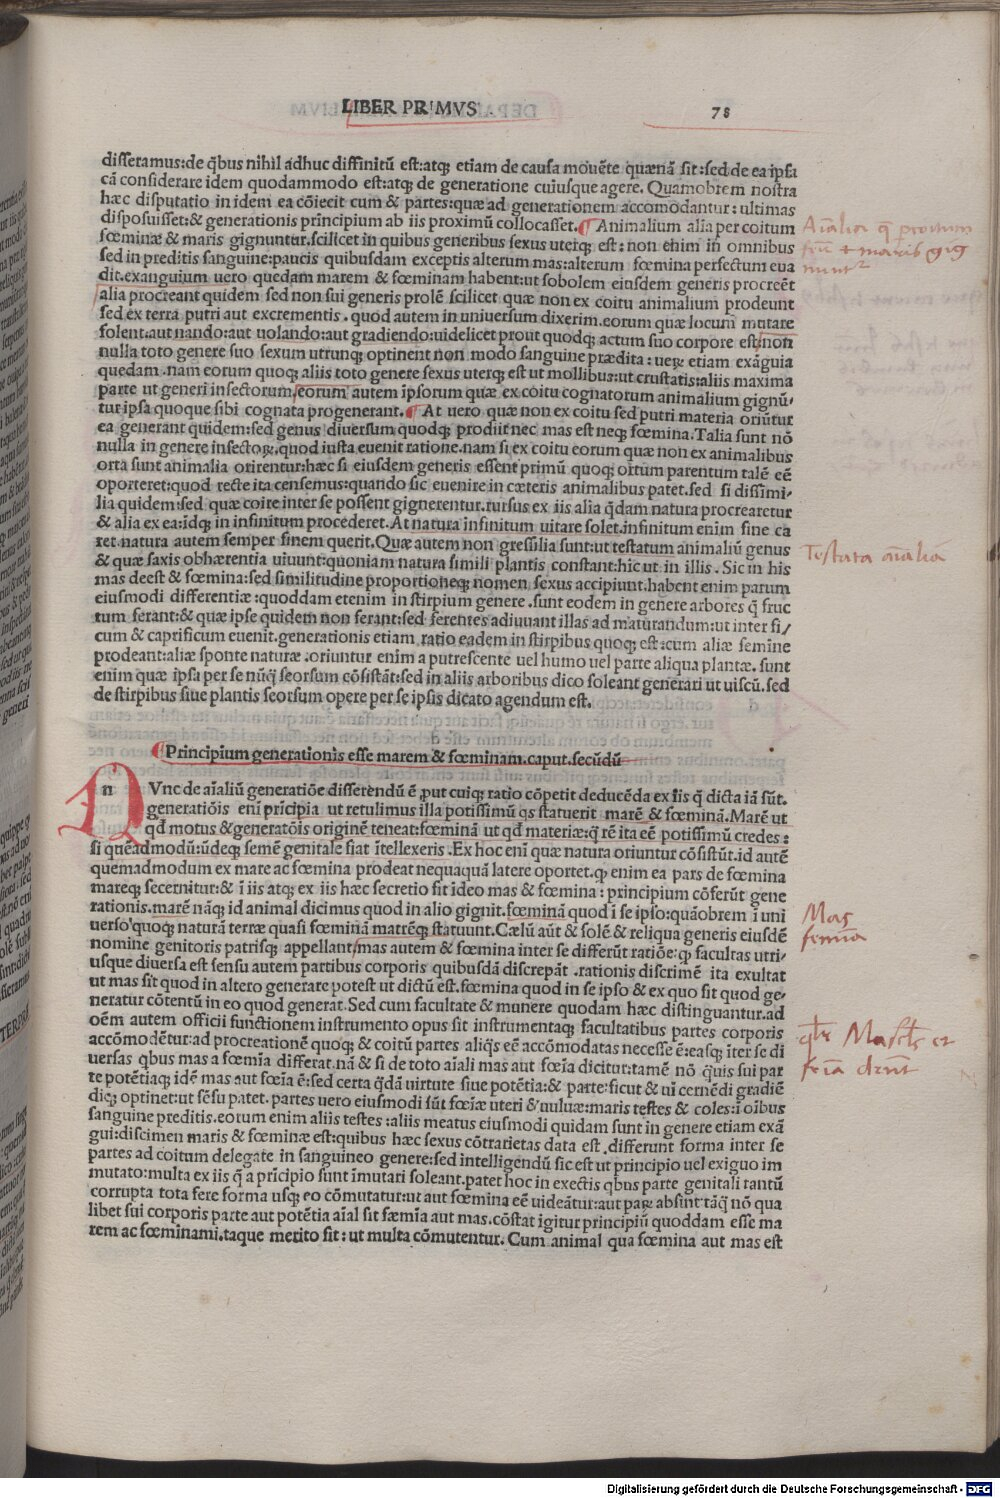 LIBER PRIMVS
78
disseramus:de qbus nihil adhuc diffinitū est:atqꝫ etiam de causa mouēte quænā sit:sed de ea ipsa
cā considerare idem quodammodo est:atqꝫ de generatione cuiusque agere. Quamobrem nostra
hæc disputatio in idem ea cōiecit cum & partes:quæ ad generationem accomodantur: ultimas
disposuisset:& generationis principium ab iis proximū collocasset. ¶ Animalium alia per coitum
fœminæ & maris gignuntur.scilicet in quibus generibus sexus uterqꝫ est: non enim in omnibus
sed in preditis sanguine:paucis quibusdam exceptis alterum mas:alterum fœmina perfectum eua
dit.exanguium uero quedam marem & fœminam habent:ut sobolem eiusdem generis procreēt
alia procreant quidem sed non sui generis prolē scilicet quæ non ex coitu animalium prodeunt
sed ex terra putri aut excrementis. quod autem in uniuersum dixerim.eorum quæ locum mutare
solent:aut nando:aut uolando:aut gradiendo:uidelicet prout quodqꝫ actum suo corpore est/non
nulla toto genere suo sexum utrunqꝫ optinent non modo sanguine prædita: ueꝝ etiam exāguia
quedam.nam eorum quoqꝫ aliis toto genere sexus uterqꝫ est ut mollibus:ut crustatis:aliis maxima
parte ut generi insectorum.eorum autem ipsorum quæ ex coitu cognatorum animalium gignū-
tur ipsa quoque sibi cognata progenerant. ¶ At uero quæ non ex coitu sed putri materia oriūtur
ea generant quidem:sed genus diuersum quodqꝫ prodiit nec mas est neqꝫ fœmina.Talia sunt nō
nulla in genere insectoꝝ.quod iusta euenit ratione.nam si ex coitu eorum quæ non ex animalibus
orta sunt animalia orirentur:hæc si eiusdem generis essent primū quoqꝫ ortum parentum talē eē
oporteret:quod recte ita censemus:quando sic euenire in cæteris animalibus patet.sed si dissimi-
lia quidem:sed quæ coire inter se possent gignerentur.rursus ex iis alia q̄dam natura procrearetur
& alia ex ea:idqꝫ in infinitum procederet. At natura infinitum uitare solet.infinitum enim fine ca
ret natura autem semper finem querit. Quæ autem non gressilia sunt:ut testatum animaliū genus
& quæ saxis obhærentia uiuunt:quoniam natura simili plantis constant:hic ut in illis. Sic in his
mas deest & fœmina:sed similitudine proportioneqꝫ nomen sexus accipiunt.habent enim parum
eiusmodi differentiæ:quoddam etenim in stirpium genere.sunt eodem in genere arbores q̄ fruc
tum ferant:& quæ ipse quidem non ferant:sed ferentes adiuuant illas ad maturandum:ut inter fi/
cum & caprificum euenit.generationis etiam ratio eadem in stirpibus quoqꝫ est:cum aliæ semine
prodeant:aliæ sponte naturæ.oriuntur enim a putrescente uel humo uel parte aliqua plantæ. sunt
enim quæ ipsa per se nūq̄ seorsum cōsistāt:sed in aliis arboribus dico soleant generari ut uiscū.sed
de stirpibus siue plantis seorsum opere per se ipsis dicato agendum est.
¶ Principium generationis esse marem & fœminam.caput.secūdū
n Vnc de aīaliū generatiōe disserēndū ē ꝓut cuiqꝫ ratio cōpetit deducēda ex iis q̄ dicta iā sūt.
generatiōis enī prīcipia ut retulimus illa potissimū qs statuerit marē & fœminā. Marē ut
qd̄ motus & generatōis originē teneat:fœminā ut qd̄ materiæ:q̄ rē ita eē potissimū credes:
si quēadmodū:ūdeqꝫ semē genitale fiat ītellexeris. Ex hoc enī quæ natura oriuntur cōsistūt.id autē
quemadmodum ex mare ac fœmina prodeat nequaquā latere oportet.qꝫ enim ea pars de fœmina
mareqꝫ secernitur:& ī iis atqꝫ ex iis hæc secretio sit ideo mas & fœmina: principium cōferūt gene
rationis.marē nāqꝫ id animal dicimus quod in alio gignit.fœminā quod ī se ipso:quāobrem ī uni
uerso quoqꝫ naturā terræ quasi fœminā matrēqꝫ statuunt.Cælū aūt & solē & reliqua generis eiusdē
nomine genitoris patrisqꝫ appellant/mas autem & fœmina inter se differūt ratiōe:qꝫ facultas utri-
usque diuersa est sensu autem partibus corporis quibusdā discrepāt .rationis discrimē ita exultat
ut mas sit quod in altero generare potest ut dictū est.fœmina quod in se ipso & ex quo sit quod ge-
neratur cōtentū in eo quod generat. Sed cum facultate & munere quodam hæc distinguantur.ad
oēm autem officii functionem instrumento opus sit instrumentaqꝫ facultatibus partes corporis
accōmodētur:ad procreationē quoqꝫ & coitū partes aliq̄s eē accōmodatas necesse ē:easqꝫ īter se di
uersas qbus mas a fœmīa differat.nā & si de toto aīali mas aut fœīa dicitur:tamē nō q̄uis sui par
te potētiaqꝫ idē mas aut fœīa ē:sed certa q̄dā uirtute siue potētia:& parte:sicut & uī cernēdi gradiē
diqꝫ optinet:ut sēsu patet. partes uero eiusmodi sūt fœīæ uteri & uuluæ:maris testes & coles:ī oībus
sanguine preditis.eorum enim aliis testes :aliis meatus eiusmodi quidam sunt in genere etiam exā
gui:discimen maris & fœminæ est:quibus hæc sexus cōtrarietas data est .differunt forma inter se
partes ad coitum delegate in sanguineo genere:sed intelligendū sic est ut principio uel exiguo im
mutato:multa ex iis q̄ a prīcipio sunt īmutari soleant.patet hoc in exectis qbus parte genitali tantū
corrupta tota fere forma usqꝫ eo cōmutatur:ut aut fœmina eē uideātur:aut paꝝ absint:tāq̄ nō qua
libet sui corporis parte aut potētia aīal sit fæmīa aut mas.cōstat igitur principiū quoddam esse ma
rem ac fœminami.taque merito sit: ut multa cōmutentur. Cum animal qua fœmina aut mas est
Testata aīalia
Mas
femīa
Digitalisierung gefördert durch die Deutsche Forschungsgemeinschaft - DFG